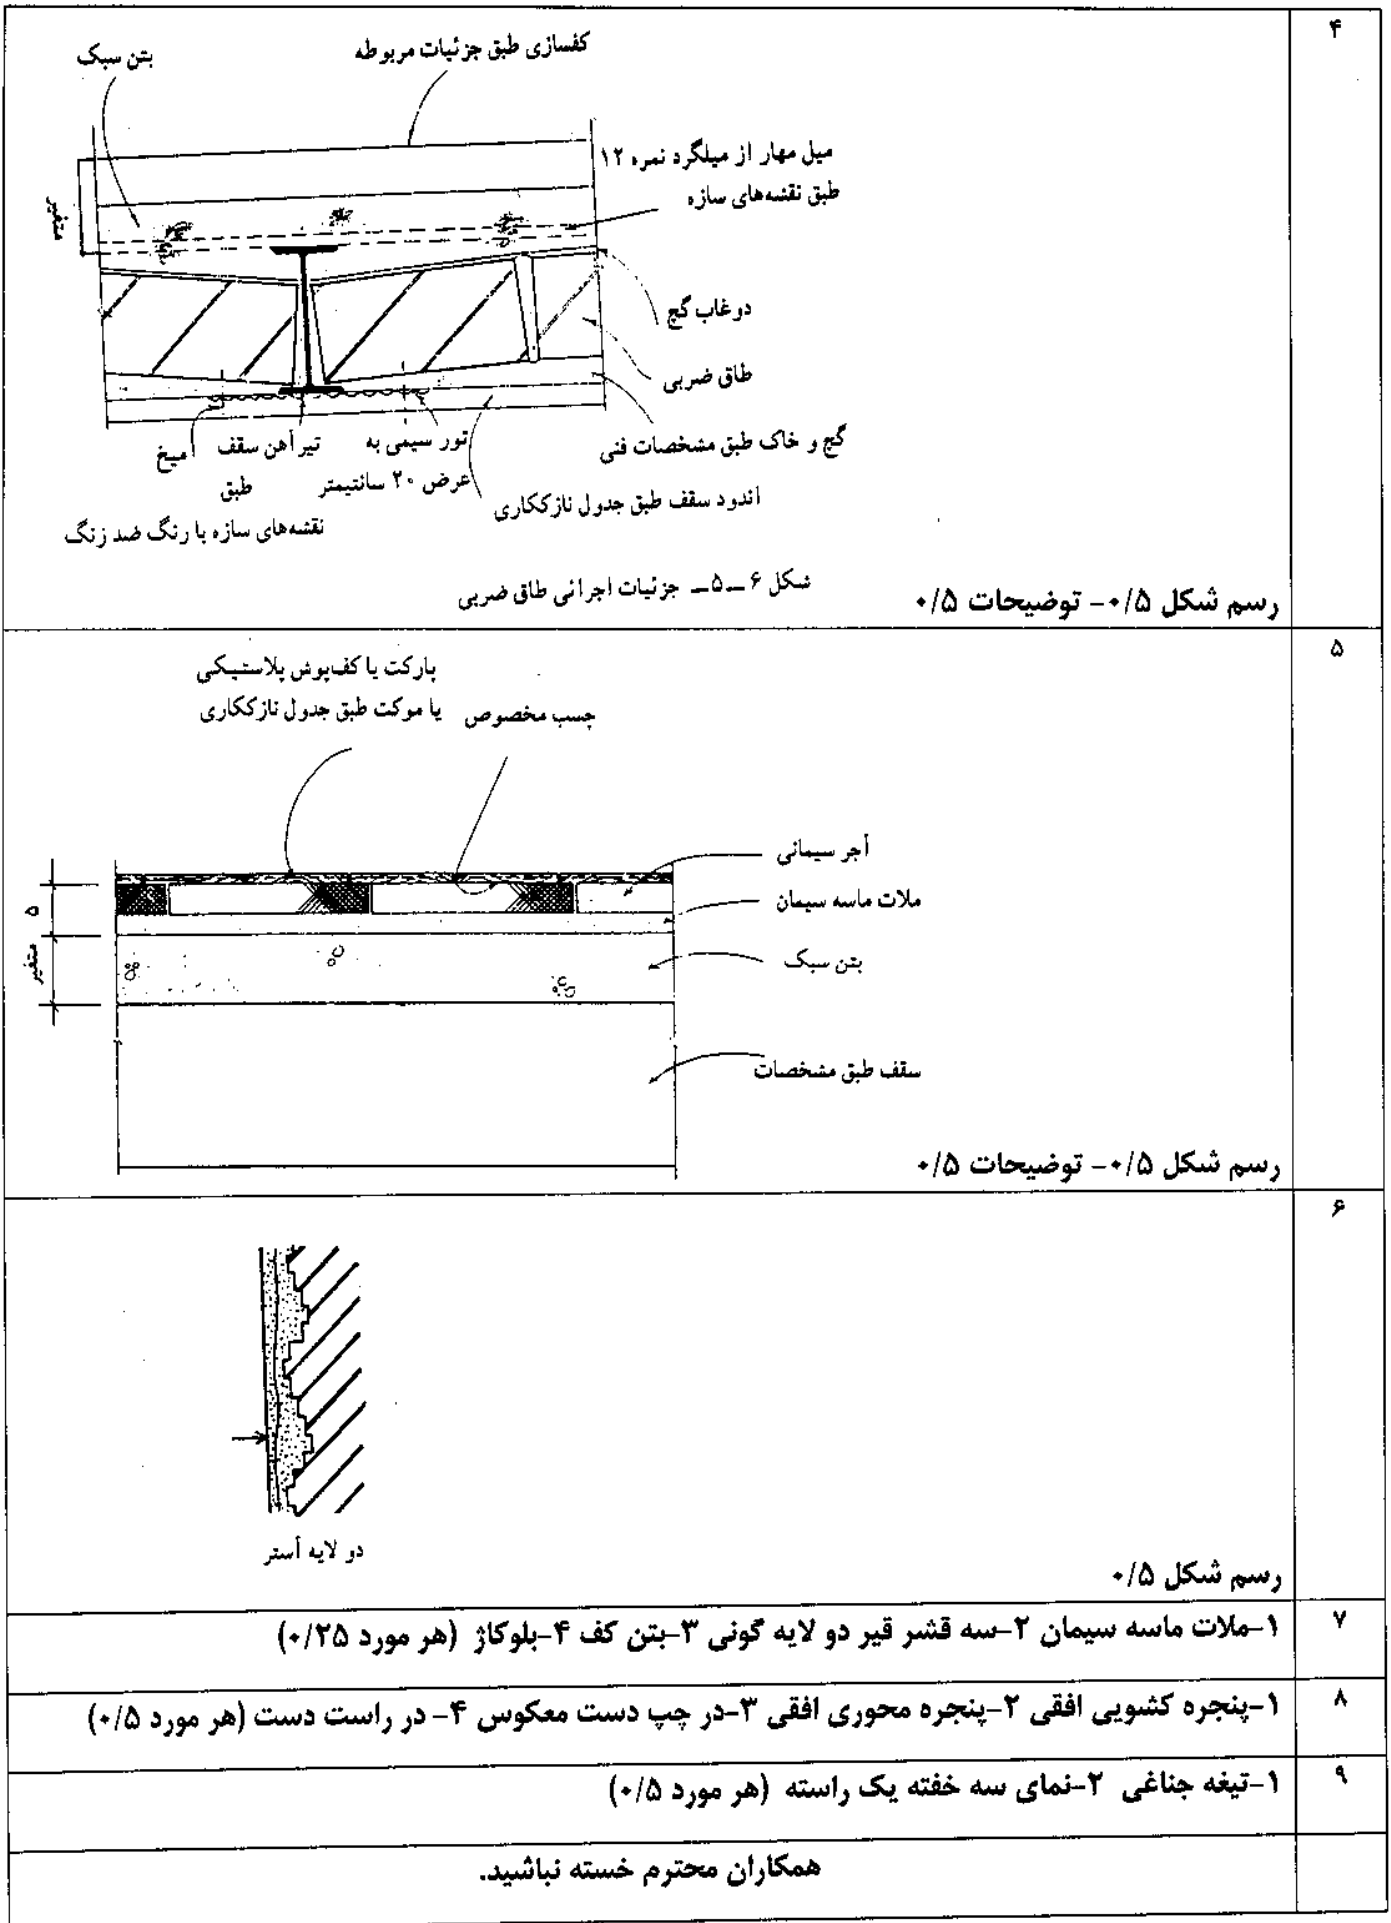 ۴
کفسازی طبق جزئیات مربوطه
بتن سبک
میل مهار از میلگرد نمره ۱۲
طبق نقشه‌های سازه
متغیر
دوغاب گچ
طاق ضربی
گچ و خاک طبق مشخصات فنی
اندود سقف طبق جدول نازککاری
تور سیمی به
عرض ۲۰ سانتیمتر
تیرآهن سقف
طبق
نقشه‌های سازه با رنگ ضد زنگ
میخ
شکل ۶ ــ ۵ ــ جزئیات اجرائی طاق ضربی
رسم شکل ۰/۵- توضیحات ۰/۵
۵
پارکت یا کف‌پوش پلاستیکی
یا موکت طبق جدول نازککاری
چسب مخصوص
آجر سیمانی
ملات ماسه سیمان
بتن سبک
سقف طبق مشخصات
۵
متغیر
رسم شکل ۰/۵- توضیحات ۰/۵
۶
دو لایه آستر
رسم شکل ۰/۵
۷
۱-ملات ماسه سیمان ۲-سه قشر قیر دو لایه گونی ۳-بتن کف ۴-بلوکاژ (هر مورد ۰/۲۵)
۸
۱-پنجره کشویی افقی ۲-پنجره محوری افقی ۳-در چپ دست معکوس ۴- در راست دست (هر مورد ۰/۵)
۹
۱-تیغه جناغی ۲-نمای سه خفته یک راسته (هر مورد ۰/۵)
همکاران محترم خسته نباشید.